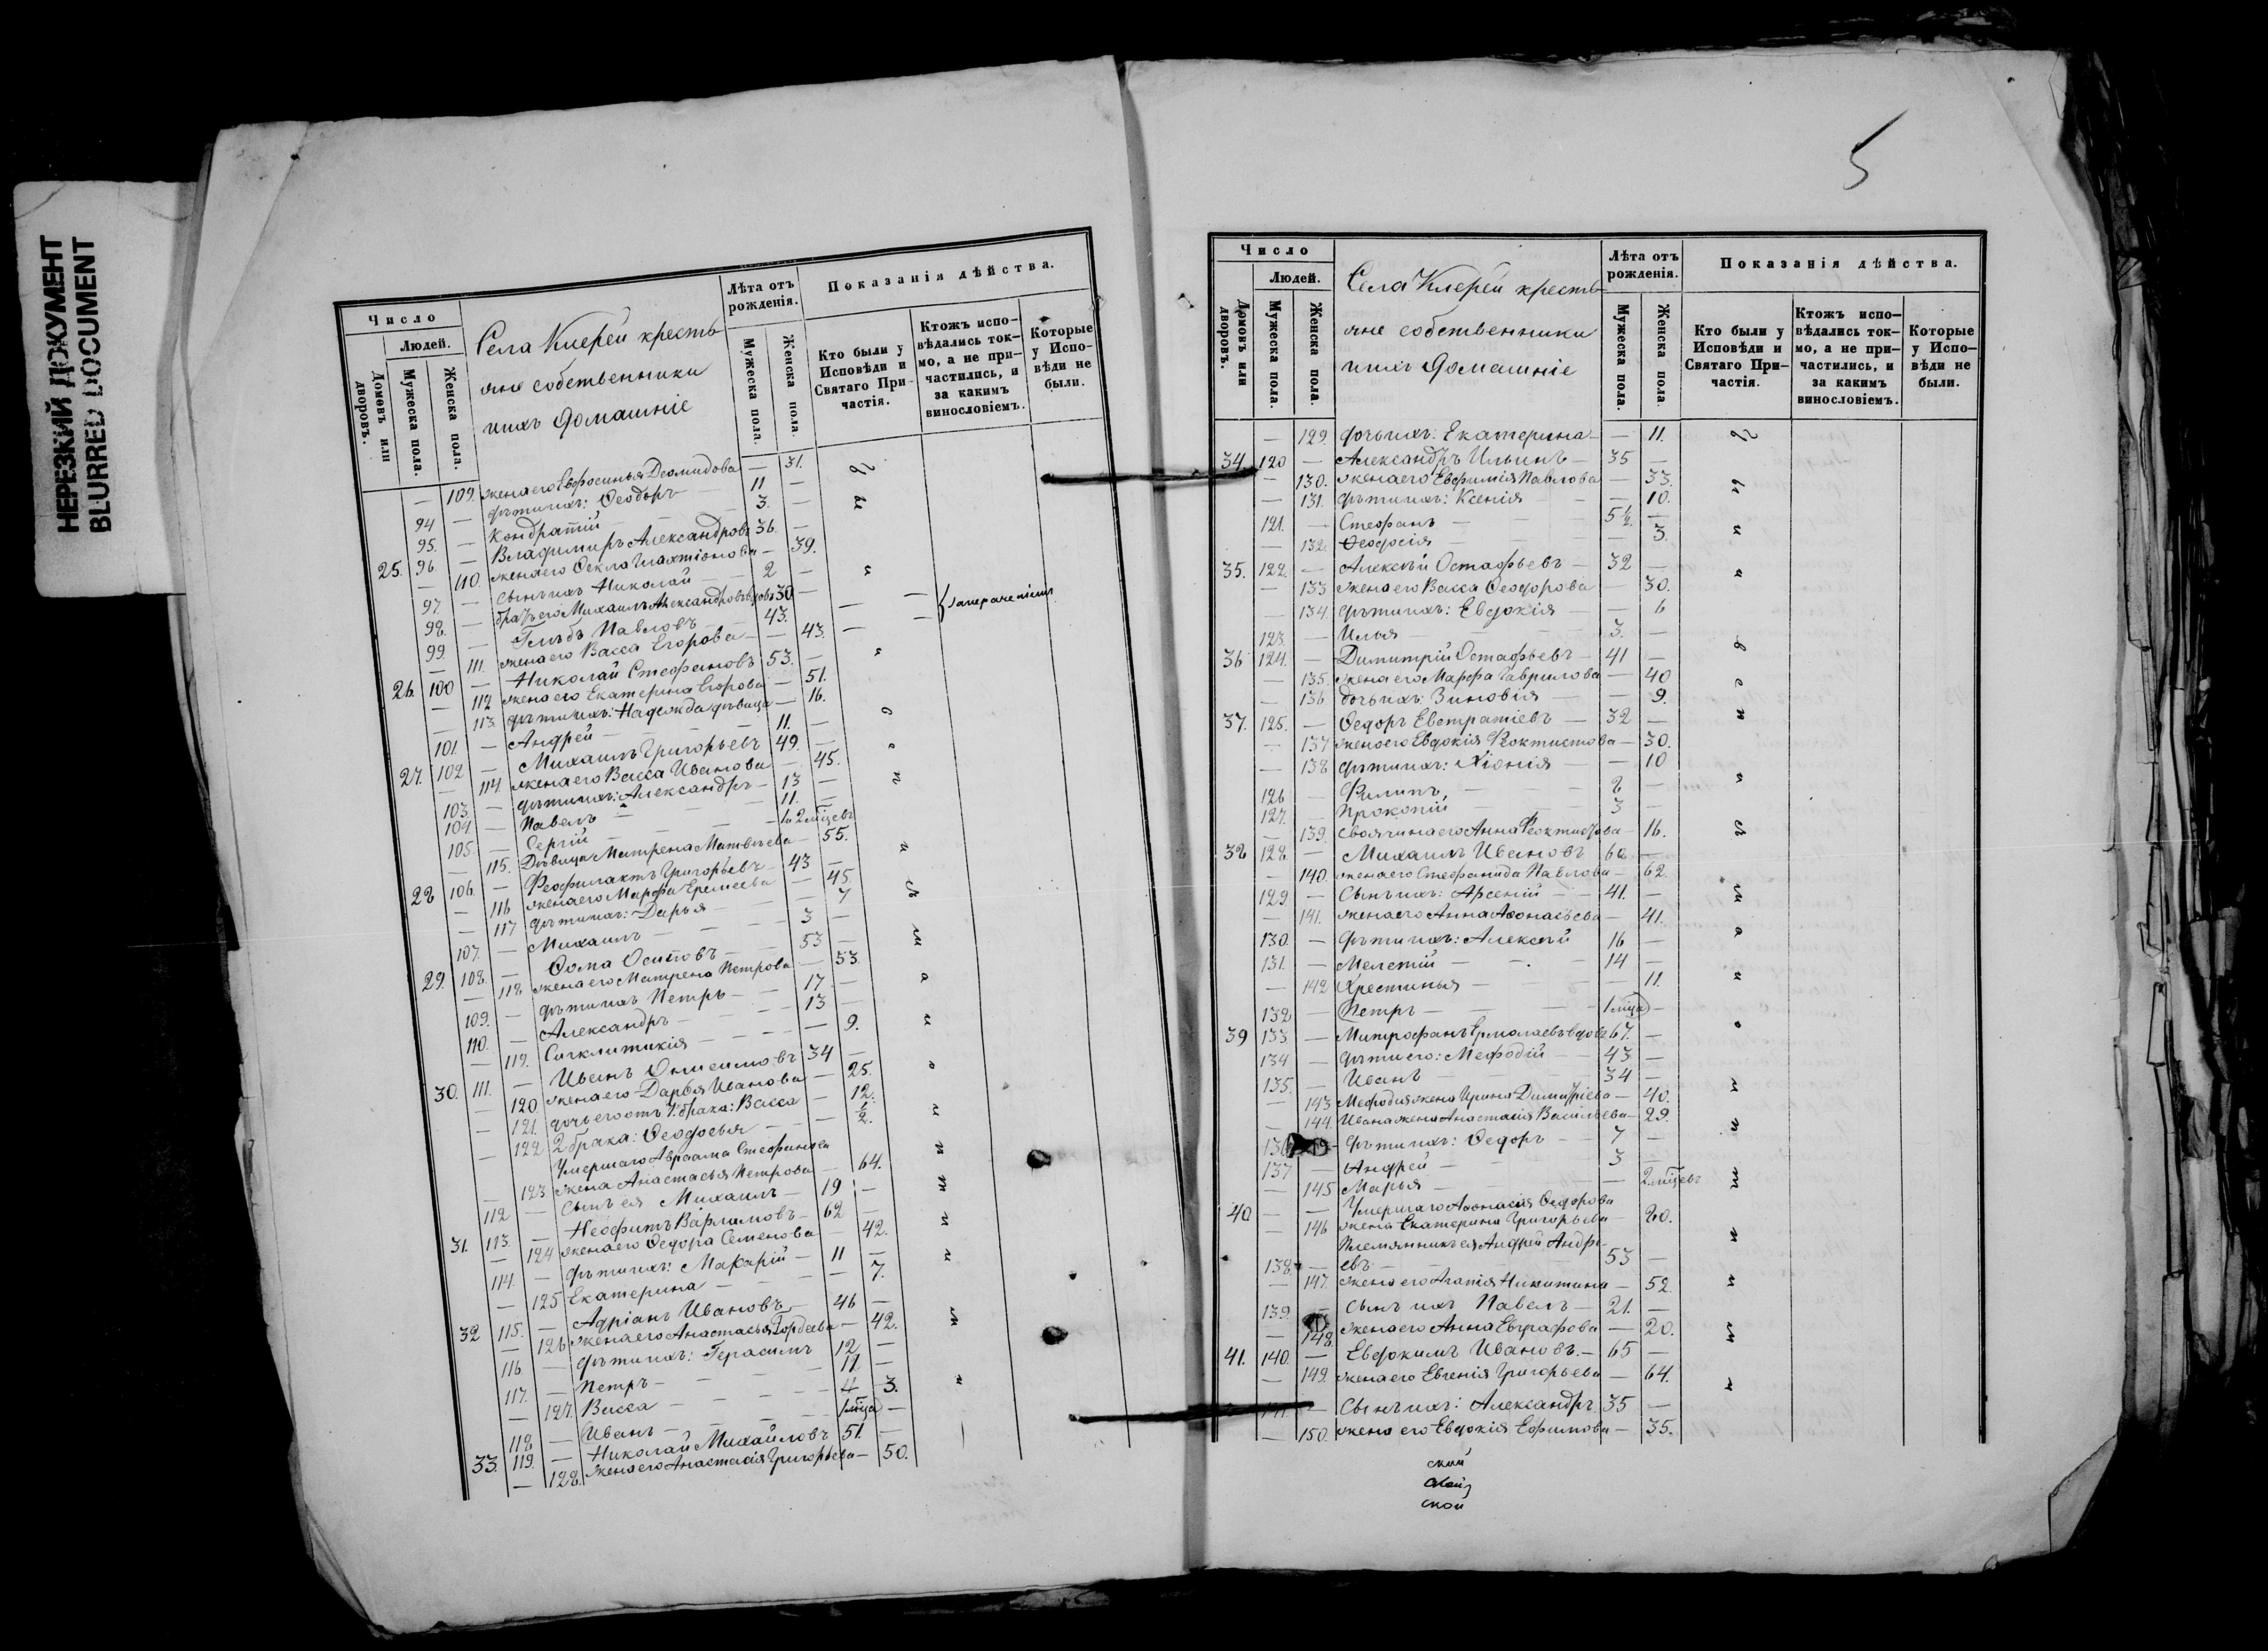 НЕРЕЗКИЙ ДОКУМЕНТ
BLURRED DOCUMENT
Число
Людей.
Домовъ или дворовъ.
Мужеска пола.
Женска пола.
Села Клерей кресть
яне собственники
ихъ домашніе
Лѣта отъ рожденія.
Мужеска пола.
Женска пола.
Показанія дѣйства.
Кто были у Исповѣди и Святаго Причастія.
Ктожъ исповѣдались токмо, а не причастились, и за какимъ винословіемъ.
Которые у Исповѣди не были.
— 109. жена его Евфросинья Деомидова — 31.
94 — дѣти ихъ: Ѳеодоръ 11 —
95. — Кондратій — 3. —
25. 96. — Владимиръ Александровъ 36. —
— 110. жена его Ѳекла Галахтіонова — 39.
97 — сынъ ихъ Николай — 2 —
98. — братъ его Михаилъ Александровъ вдовъ 30 —
99. — Глѣбъ Павловъ — 43. —
— 111. жена его Васса Егорова — 43.
26. 100 — Николай Стефановъ 53. —
— 112 жена его Екатерина Егорова — 51.
— 113. дѣти ихъ: Надежда дѣвица — 16.
101. — Андрей — 11. —
27. 102 — Михаилъ Григорьевъ 49. —
— 114. жена его Васса Иванова — 45.
103. — дѣти ихъ: Александръ — 13 —
104. — Павелъ — 11. —
105. — Сергій —
— 115. Дѣвица Матрена Матвѣева — 55.
28 106. — Феофилактъ Григорьевъ — 43 —
— 116 жена его Марфа Еремеева — 45.
— 117 дѣти ихъ: Дарья — 7
107. — Михаилъ — 3 —
29. 108. — Ѳома Осиповъ — 53 —
— 118 жена его Матрена Петрова — 53.
109. — дѣти ихъ Петръ — 17 —
110. — Александръ — 13 —
— 119. Сигклитикія — 9.
30. 111. — Иванъ Онисимовъ 34 —
— 120 жена его Дарья Иванова — 25.
— 121. дочь его отъ 1. брака: Васса — 12.
— 122 2 брака: Ѳеодосья — ½.
Умершаго Авраама Стефанова
— 123 жена Анастасья Петрова — 64.
112 — Сынъ ея Михаилъ — 19 —
31. 113. — Неофитъ Варламовъ — 62 —
— 124 жена его Ѳедора Семенова — 42.
114. — дѣти ихъ: Макарій — 11 —
— 125 Екатерина — 7.
32 115. — Адріанъ Ивановъ — 46 —
— 126 жена его Анастасья Гордеева — 42.
116 — дѣти ихъ: Герасимъ 12 —
117. — Петръ — 11 —
— 127. Васса — 3.
118 — Иванъ — 1 мца —
33. 119. — Николай Михайловъ 51. —
— 128. жена его Анастасія Григорьева — 50.
5
Число
Людей.
Домовъ или дворовъ.
Мужеска пола.
Женска пола.
Села Клерей кресть
яне собственники
ихъ домашніе
Лѣта отъ рожденія.
Мужеска пола.
Женска пола.
Показанія дѣйства.
Кто были у Исповѣди и Святаго Причастія.
Ктожъ исповѣдались токмо, а не причастились, и за какимъ винословіемъ.
Которые у Исповѣди не были.
— 129. дочь ихъ: Екатерина — — 11.
34. 120 — Александръ Ильинъ — 35 —
— 130. жена его Евфимія Павлова — 33.
— 131. дѣти ихъ: Ксенія — — 10.
121. — Стефанъ — 5½ —
— 132 Ѳеодосія — — 3.
35. 122. — Алексѣй Остафьевъ — 32 —
— 133 жена его Васса Ѳеодорова — 30.
— 134 дѣти ихъ: Евдокія — — 6
123. — Илья 3. —
36 124. — Димитрій Остафьевъ — 41 —
— 135. жена его Марфа Гаврилова — 40
— 136 дочь ихъ: Зиновія — — 9.
37. 125. — Ѳедоръ Евстратіевъ — 32 —
— 137 жена его Евдокія Феоктистова — 30.
— 138 дѣти ихъ: Хіонія — — 10
126 — Филипъ, — 8 —
127. — Прокопій — 3 —
— 139. Своячина его Анна Феоктистова — 16.
38 128. — Михаилъ Ивановъ 62 —
— 140. жена его Стефанида Павлова — 62.
129 — Сынъ ихъ: Арсеній — 41. —
— 141. жена его Анна Аѳонасьева — 41.
130. — дѣти ихъ: Алексѣй 16 —
131. — Мелетій — 14 —
— 142 Хрестинья — — 11.
132 — Петръ — 1 мца —
39 133 — Митрофанъ Ермолаевъ вдовъ 67. —
134 — дѣти его: Мефодій — 43 —
135. — Иванъ 34 —
— 143 Мефодія жена Ирина Димитріева — 40.
— 144. Ивана жена Анастасія Васильева — 29.
136 — дѣти ихъ: Ѳедоръ — 7 —
137 — Андрей — 3 —
— 145 Марья — — 2 мцевъ
40 — — Умершаго Аѳонасія Ѳедорова
— 146 жена Екатерина Григорьева — 80.
Племянникъ ея Андрей Андре-
138. — евъ — 53 —
— 147. жена его Агапія Никитина — 52.
139. — Сынъ ихъ Павелъ — 21. —
— 148. жена его Анна Евграфова — 20.
41. 140. — Евдокимъ Ивановъ. — 65 —
— 149. жена его Евгенія Григорьева — 64.
141. — Сынъ ихъ: Александръ 35 —
— 150. жена его Евдокія Ефимова — 35.
ской
ской